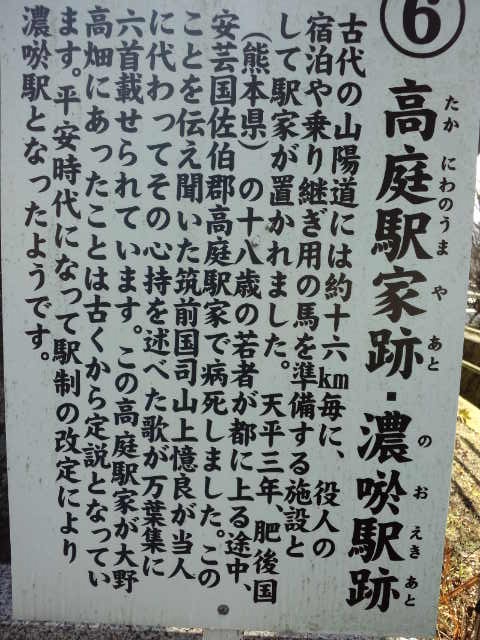 ⑥
高庭駅家跡・濃唹駅跡
たか にわのうま や あと の お えき あと
古代の山陽道には約十六km毎に、役人の
宿泊や乗り継ぎ用の馬を準備する施設と
して駅家が置かれました。天平三年、肥後国
(熊本県)の十八歳の若者が都に上る途中、
安芸国佐伯郡高庭駅家で病死しました。この
ことを伝え聞いた筑前国司山上憶良が当人
に代わってその心持を述べた歌が万葉集に
六首載せられています。この高庭駅家が大野
高畑にあったことは古くから定説となってい
ます。平安時代になって駅制の改定により
濃唹駅となったようです。